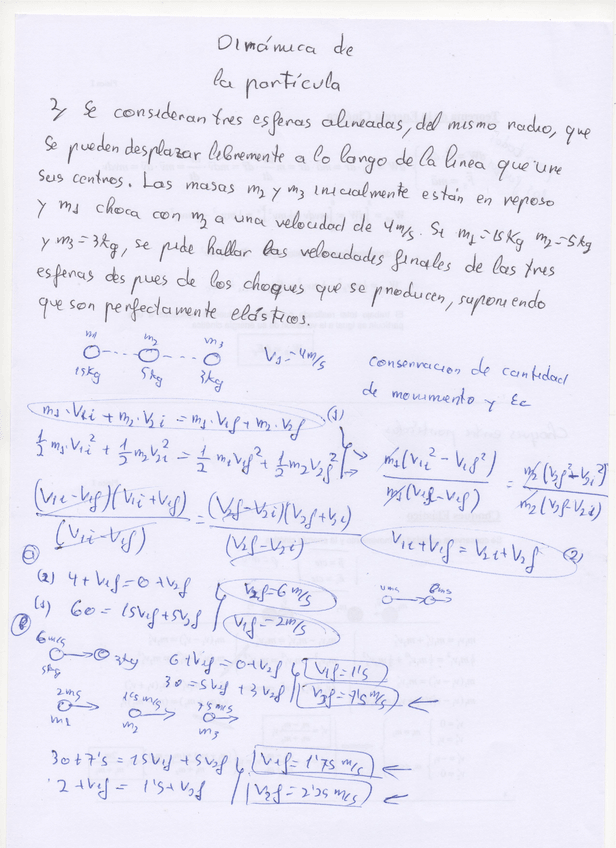 Dinámica de
la partícula
2) Se consideran tres esferas alineadas, del mismo radio, que
se pueden desplazar libremente a lo largo de la linea que une
sus centros. Las masas m2 y m3 inicialmente están en reposo
y m1 choca con m2 a una velocidad de 4 m/s. Si m1=15Kg m2=5kg
y m3=3kg, se pide hallar las velocidades finales de las tres
esferas des pues de los choques que se producen, suponiendo
que son perfectamente elásticos.
m1 m2 m3
V1=4m/s
15kg 5kg 3kg
conservacion de cantidad
de movimiento y Ec
m1·V1i + m2·V2i = m1·V1f + m2·V2f (1)
1/2 m1V1i² + 1/2 m2V2i² = 1/2 m1V1f² + 1/2 m2V2f²
m1(V1i² - V1f²) / m1(V1f - V1f) = m2(V2f² - V2i²) / m2(V2f - V2i)
(V1i - V1f)(V1i + V1f) / (V1i - V1f) = (V2f - V2i)(V2f + V2i) / (V2f - V2i)
V1i + V1f = V2i + V2f (2)
a
(2) 4 + V1f = 0 + V2f V2f = 6 m/s
(1) 60 = 15V1f + 5V2f V1f = 2m/s
6m/s
b
6m/s
5kg 3kg
6 + V2f = 0 + V3f V2f = 1'5
30 = 5V2f + 3V3f V3f = 7'5 m/s
2m/s 1'5 m/s 7'5 m/s
m1 m2 m3
30 + 7'5 = 15V1f + 5V2f V1f = 1'75 m/s
2 + V1f = 1'5 + V2f V2f = 2'25 m/s